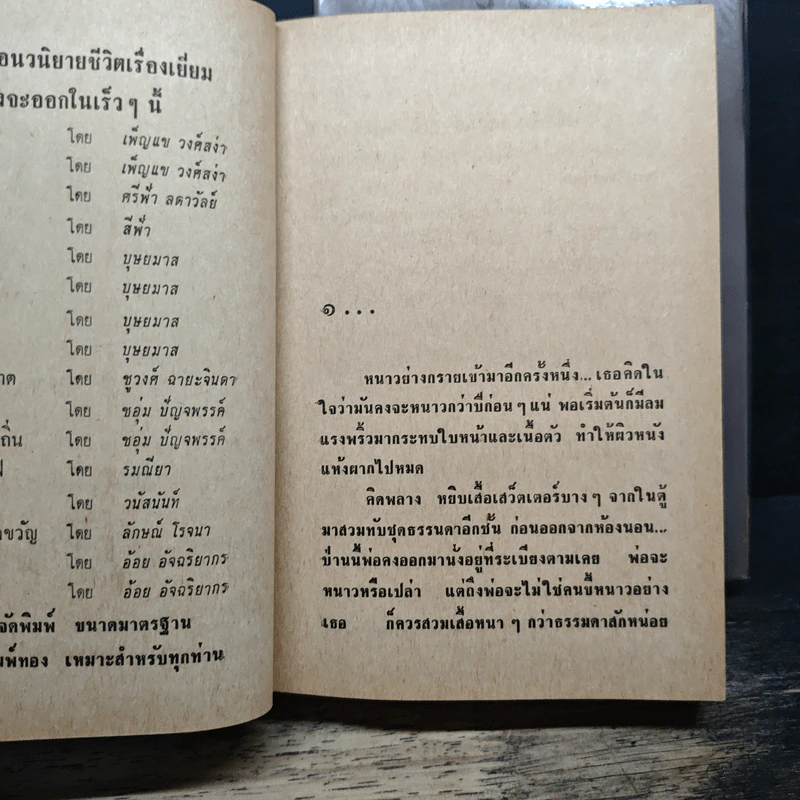 อนวนิยายชีวิตเรื่องเยี่ยม
งจะออกในเร็ว ๆ นี้
โดย เพ็ญแข วงศ์สง่า
โดย เพ็ญแข วงศ์สง่า
โดย ศรีฟ้า ลดาวัลย์
โดย สีฟ้า
โดย บุษยมาส
โดย บุษยมาส
โดย บุษยมาส
โดย บุษยมาส
าต โดย ชูวงศ์ ฉายะจินดา
โดย ชอุ่ม ปัญจพรรค์
ถิ่น โดย ชอุ่ม ปัญจพรรค์
โดย รมณียา
โดย วนัสนันท์
ขวัญ โดย ลักษณ์ โรจนา
โดย อ้อย อัจฉริยากร
โดย อ้อย อัจฉริยากร
จัดพิมพ์ ขนาดมาตรฐาน
มพ์ทอง เหมาะสำหรับทุกท่าน
๑ . . .
หนาวย่างกรายเข้ามาอีกครั้งหนึ่ง... เธอคิดใน
ใจว่ามันคงจะหนาวกว่าปีก่อน ๆ แน่ พอเริ่มต้นก็มีลม
แรงพริ้วมากระทบใบหน้าและเนื้อตัว ทำให้ผิวหนัง
แห้งผากไปหมด
คิดพลาง หยิบเสื้อเสว็ตเตอร์บาง ๆ จากในตู้
มาสวมทับชุดธรรมดาอีกชั้น ก่อนออกจากห้องนอน...
ป่านนี้พ่อคงออกมานั่งอยู่ที่ระเบียงตามเคย พ่อจะ
หนาวหรือเปล่า แต่ถึงพ่อจะไม่ใช่คนขี้หนาวอย่าง
เธอ ก็ควรสวมเสื้อหนา ๆ กว่าธรรมดาสักหน่อย